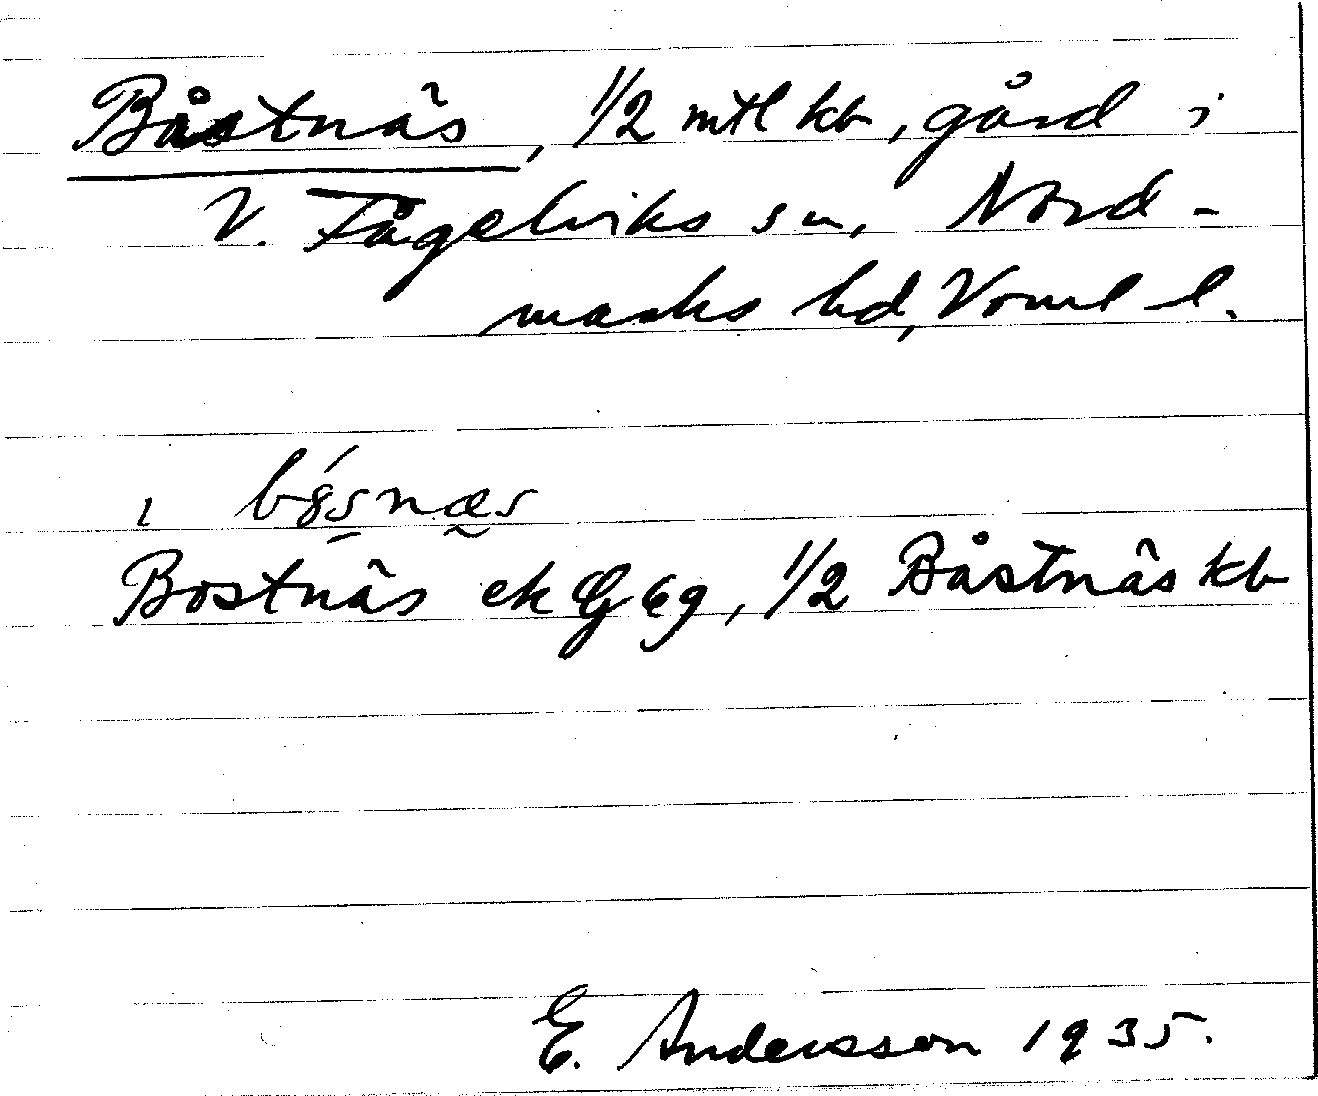 Båstnäs, 1/2 mtl kb, gård i
V. Fågelviks sn, Nord-
marks hd, Värml l.
i bó̤snæs
Bostnäs ek G 69, 1/2 Båstnäs kb
E. Andersson 1935.